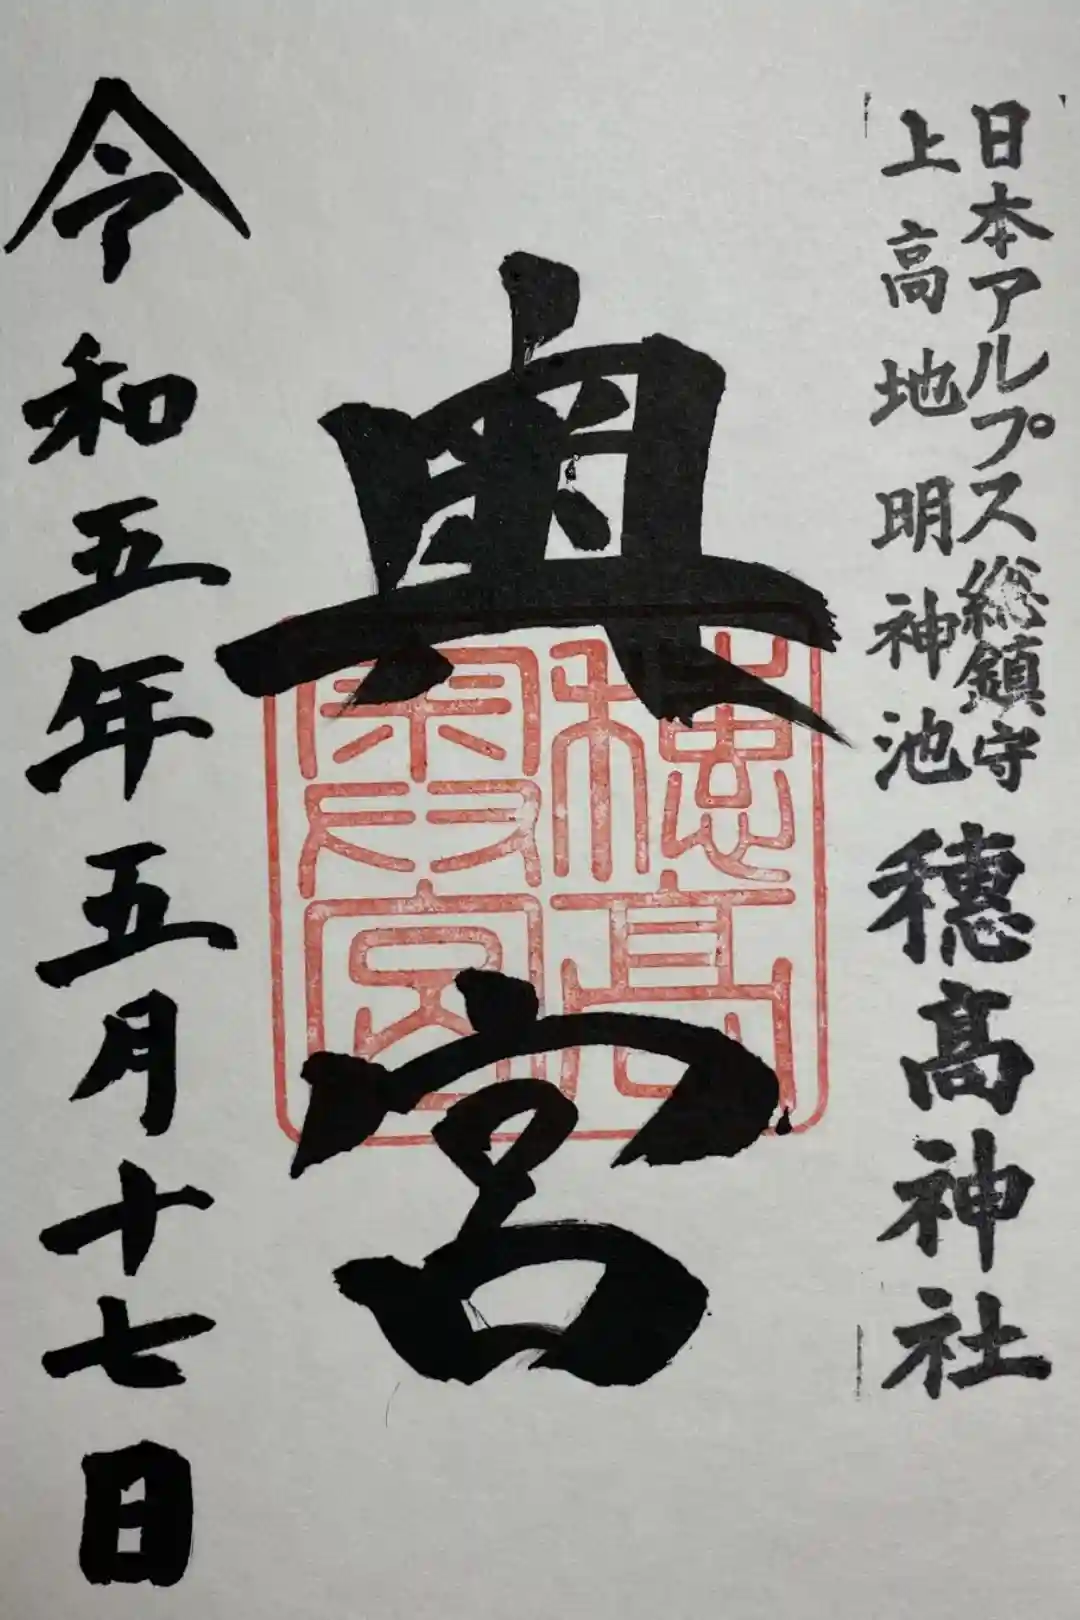 日本アルプス総鎮守
上高地明神池
穂髙神社
奥宮
穂高奥宮
令和五年五月十七日